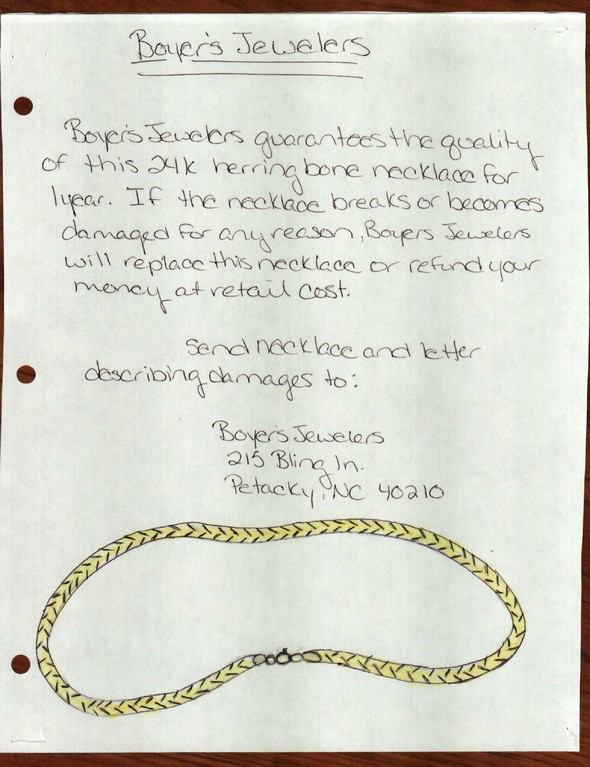 Boyer's Jewelers
Boyer's Jewelers guarantees the quality
of this 24k herringbone necklace for
1 year. If the necklace breaks or becomes
damaged for any reason, Boyers Jewelers
will replace this necklace or refund your
money at retail cost.
Send necklace and letter
describing damages to:
Boyer's Jewelers
215 Bling ln.
Petacky, NC 40210